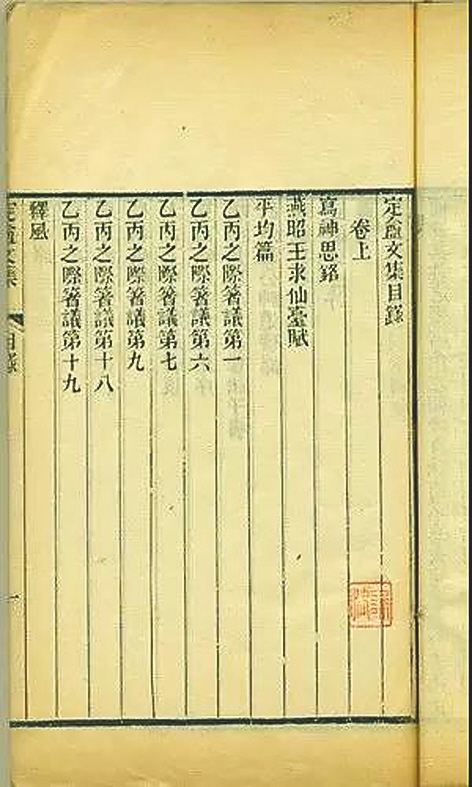 定盦文集目錄
卷上
寫神思銘
燕昭王求仙臺賦
平均篇
乙丙之際箸議第一
乙丙之際箸議第六
乙丙之際箸議第七
乙丙之際箸議第九
乙丙之際箸議第十八
乙丙之際箸議第十九
釋風
定盦文集 目錄 一